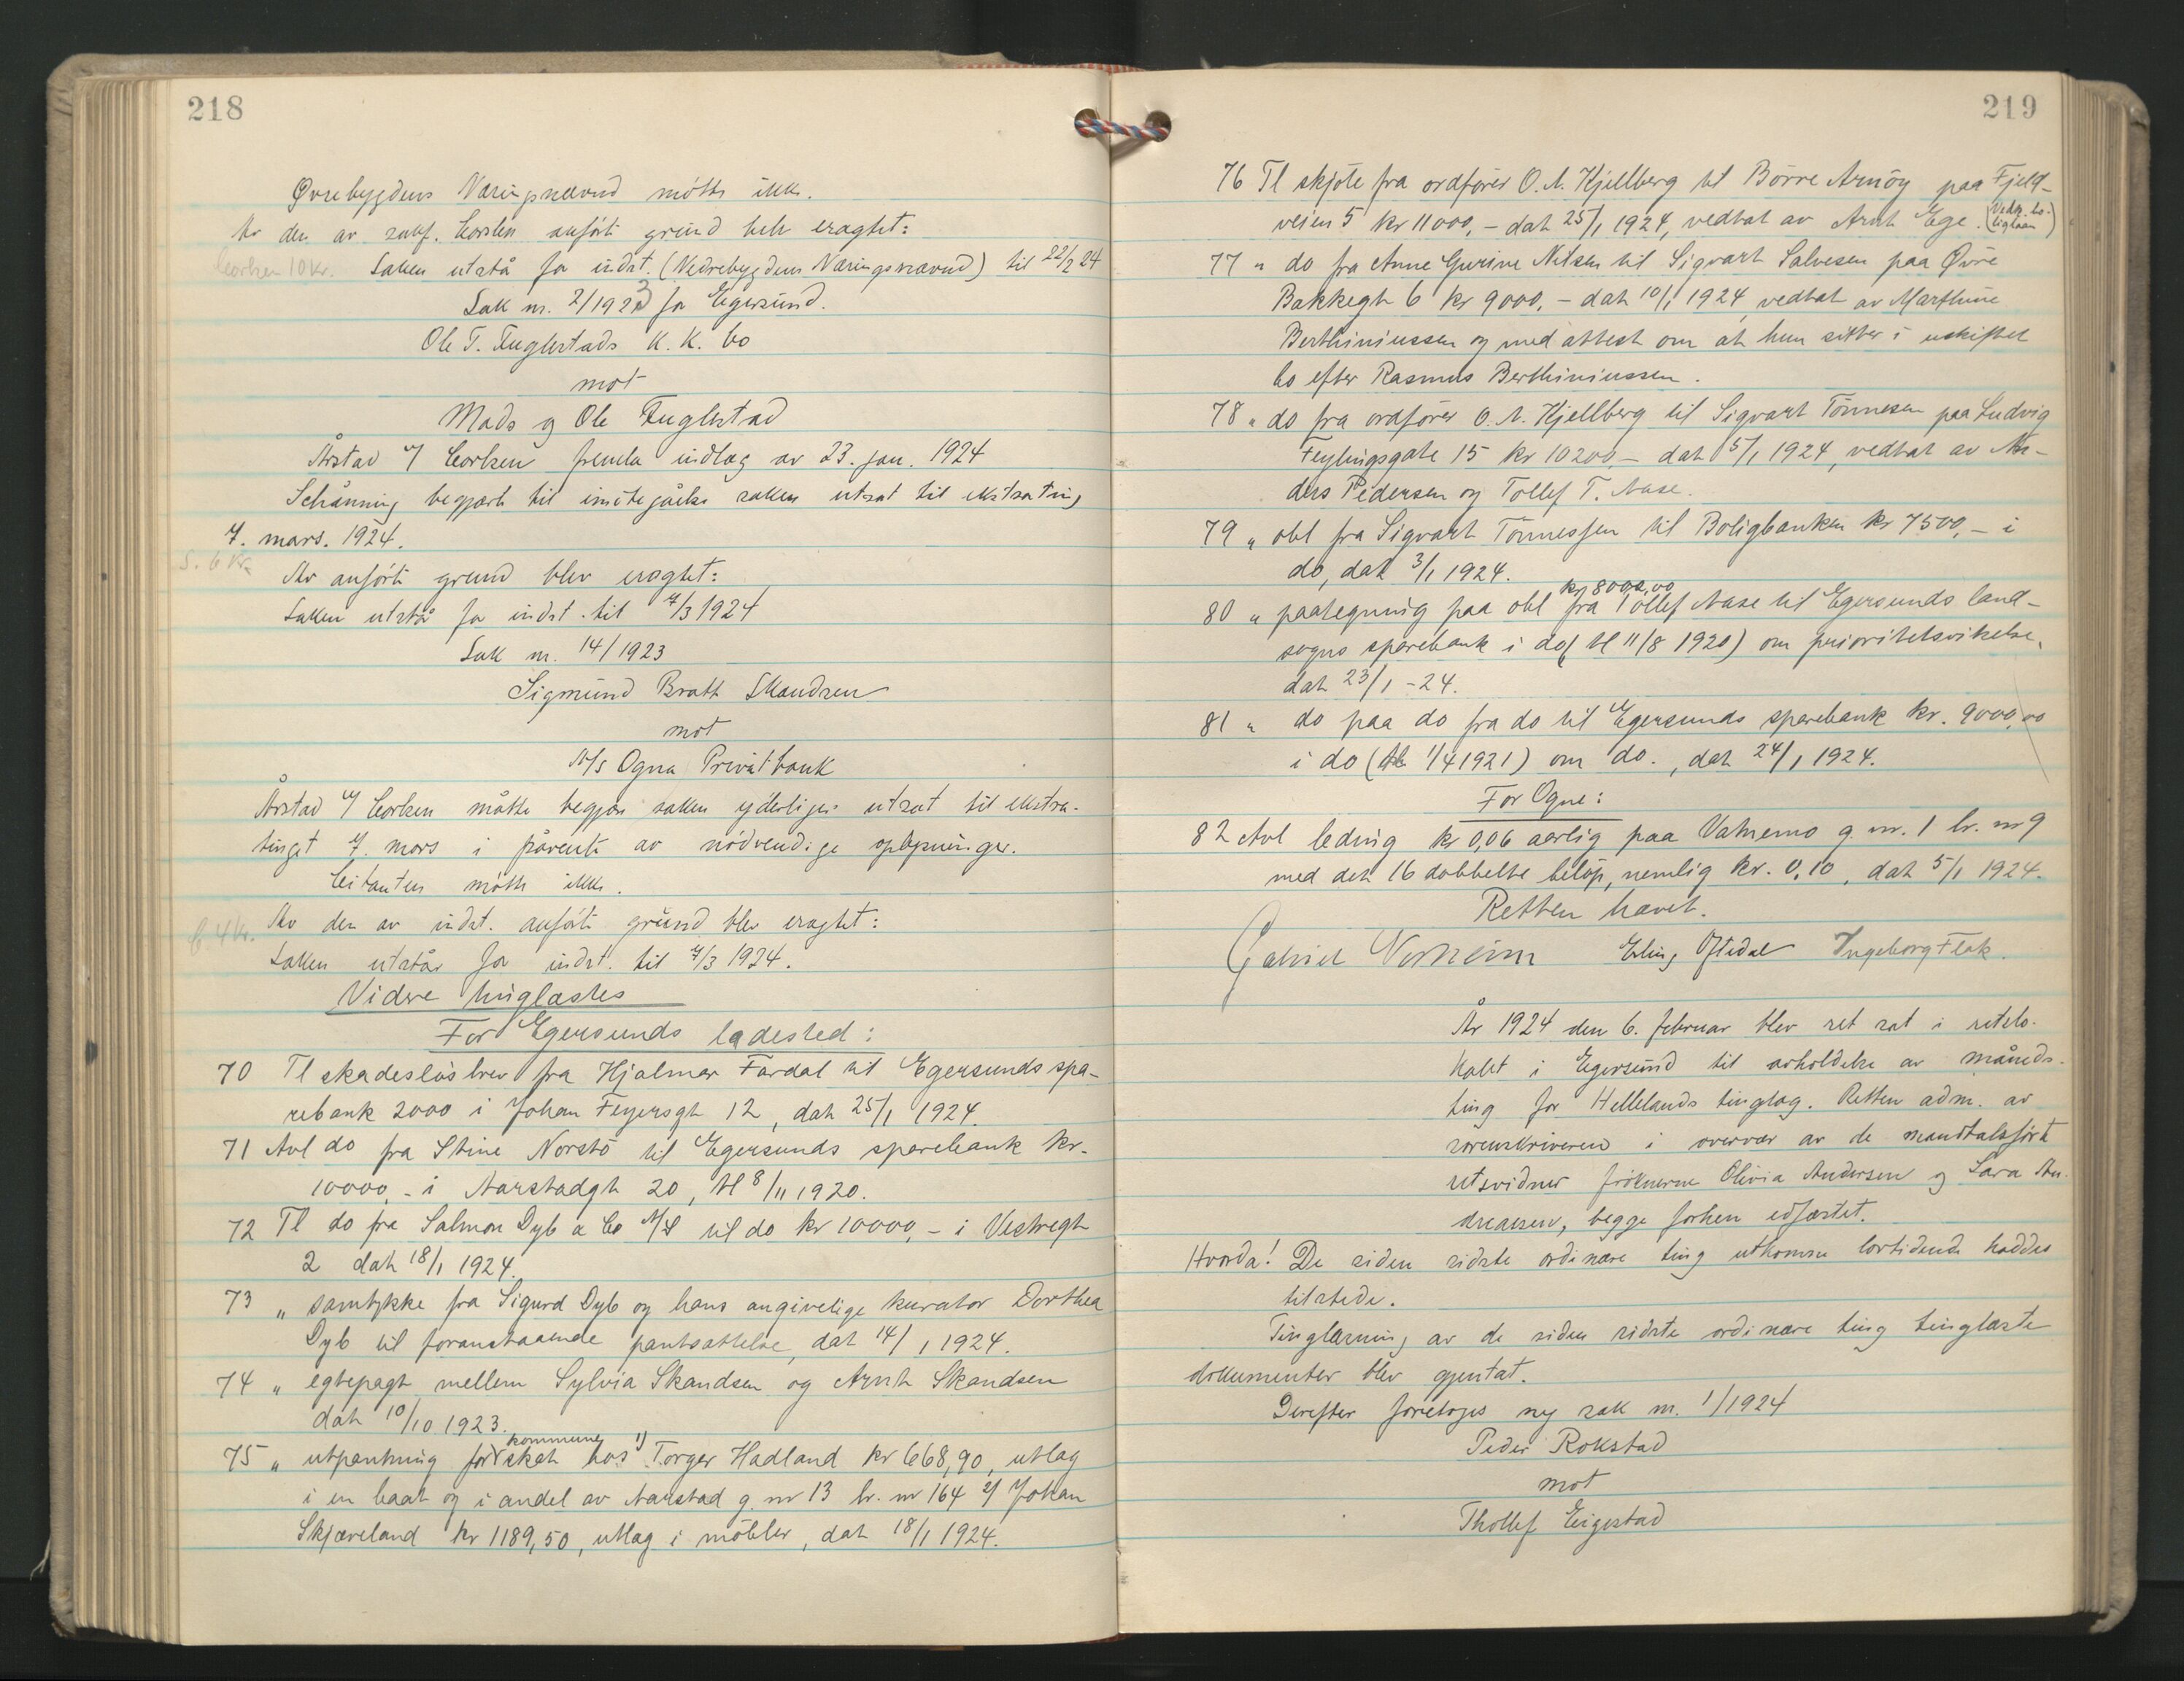 218
Øvrebygdens Næringsnævnd møtte ikke.
Av den av sakf. Corslen anførte grund blev eragtet:
Corslen 10 kr. Saken utstå for indst. (Nedrebygdens Næringsnævnd) til 22/2 24
Sak nr. 2/1923 for Egersund.
Ole T. Fuglestads K. K. bo
mot
Mads og Ole Fuglestad
Årstad f/ Corslen fremla indlæg av 23. jan. 1924
Schånning begjært til imøtegåelse saken utsat til ekstrating
7. mars. 1924.
S. 6 kr.
Av anførte grund blev eragtet:
Saken utstå for indst. til 7/3 1924
Sak nr. 14/1923
Sigmund Bratt Skandsen
mot
A/S Ogna Privatbank
Årstad f/ Corslen måtte begjære saken yderligere utsat til ekstra-
tinget 7. mars i påvente av nødvendige oplysninger.
Citanten møtte ikke.
C. 4 kr. Av den av indst. anførte grund blev eragtet:
Saken utstår for indst. til 7/3 1924.
Videre tinglæstes
For Egersunds ladested:
70 Tl skadesløsbrev fra Hjalmar Fardal til Egersunds spa-
rebank 2000 i Johan Feyersgt 12, dat 25/1 1924.
71 Avl do fra Stine Norstö til Egersunds sparebank kr.
10000,- i Aarstadgt 20, tl 8/11 1920.
72 Tl do fra Salmon Dyb & Co A/S til do kr 10000,- i Vestregt
2 dat 18/1 1924.
73 " samtykke fra Sigurd Dyb og hans angivelige kurator Dorthea
Dyb til foranstaaende pantsættelse, dat 14/1 1924.
74 " egtepagt mellem Sylvia Skandsen og Arnt Skandsen
dat 10/10 1923.
kommune 1)
75 " utpantning for skat hos Torger Hadland kr 668,90, utlag
i en baat og i andel av Aarstad g. nr 13 br. nr 164 2/ Johan
Skjæveland kr 1189,50, utlag i möbler, dat 18/1 1924.
219
76 Tl skjöte fra ordförer O. A. Kjellberg til Börre Arnöy paa Fjeld-
veien 5 kr 11000,- dat 25/1 1924, vedtat av Arnt Ege. (Vedk. bo-
liglaan)
77 " do fra Anne Gurine Nilsen til Sigvart Salvesen paa Øvre
Bakkegt 6 kr 9000,- dat 10/1 1924, vedtat av Marthine
Berthiniussen og med attest om at hun sitter i uskiftet
bo efter Rasmus Berthiniussen.
78 " do fra ordförer O. A. Kjellberg til Sigvart Tönnesen paa Ludvig
Feylingsgate 15 kr 10200,- dat 5/1 1924, vedtat av An-
ders Pedersen og Tollef T. Aase.
79 " obl fra Sigvart Tönnessen til Boligbanken kr 7500,- i
do, dat 3/1 1924.
kr 8000,00
80 " paategning paa obl fra Tollef Aase til Egersunds land-
sogns sparebank i do (tl 11/8 1920) om prioritetsvikelse,
dat 23/1 - 24.
81 " do paa do fra do til Egersunds sparebank kr. 9000,00
i do (tl 1/4 1921) om do., dat 24/1 1924.
For Ogne:
82 Avl ledning kr 0,06 aarlig paa Vatnemo g. nr. 1 br. nr 9
med det 16 dobbelte belöp, nemlig kr. 0,10, dat 5/1 1924.
Retten hævet.
Gabriel Erling Oftedal Ingeborg Flak.
År 1924 den 6. februar blev ret sat i retslo-
kalet i Egersund til avholdelse av måneds-
ting for Hellelands tinglag. Retten adm. av
sorenskriveren i overvær av de mandtalsførte
retsvidner frøknerne Olivia Andersen og Lara An-
dreassen, begge forhen edfæstet.
Hvorda! De siden sidste ordinære ting utkomne lovtidende haddes
tilstede.
Tinglæsning av de siden sidste ordinære ting tinglæste
dokumenter blev gjentat.
Derefter foretoges ny sak nr. 1/1924
Peder Rokstad
mot
Thollef Eigestad